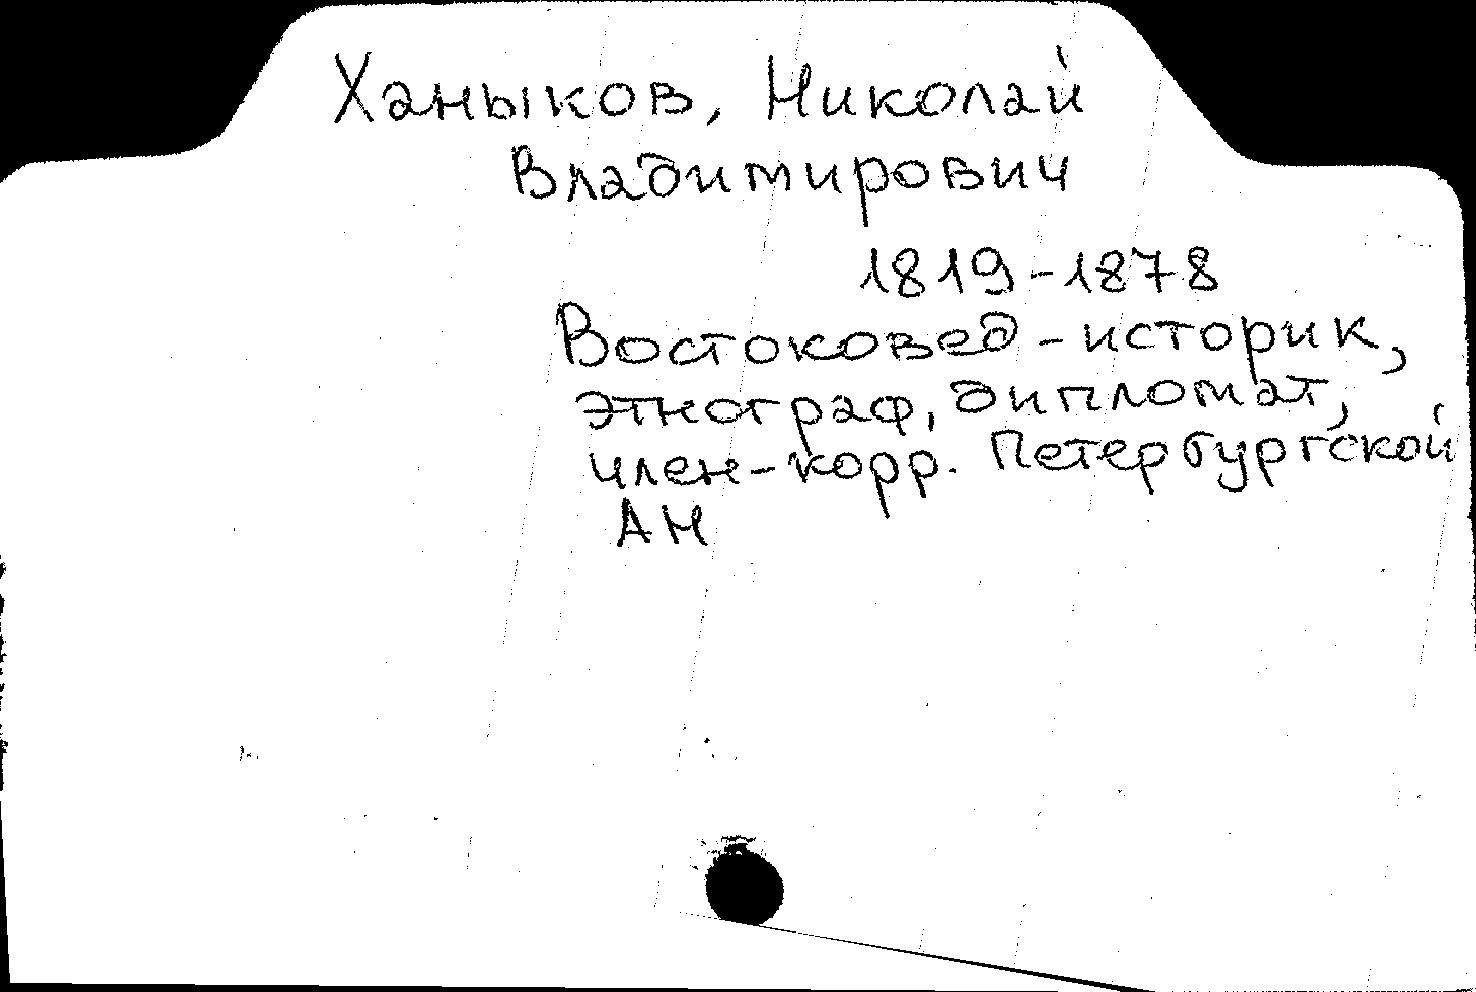 Ханыков, Николай
Владимирович
1819-1878
Востоковед-историк,
этнограф, дипломат,
член-корр. Петербургской
АН